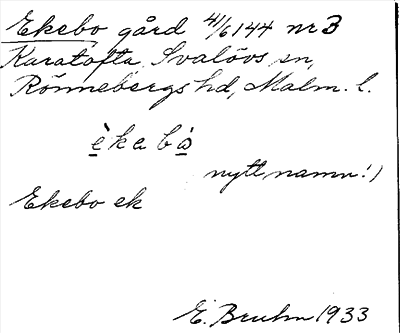 Ekebo gård 41/6144 nr 3
Karatofta, Svalövs sn,
Rönnebergs hd, Malm. l.
èkabò
nytt namn!)
Ekebo ek
E. Bruhn 1933